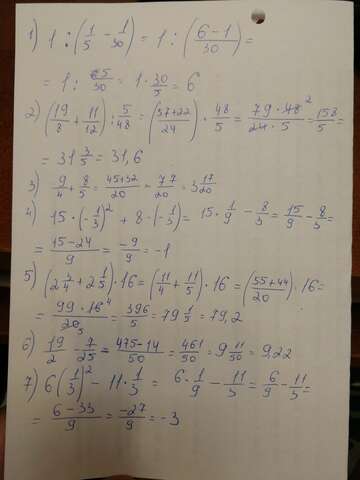 1) 1 : (1/5 - 1/30) = 1 : ((6-1)/30) =
= 1 : 5/30 = 1 · 30/5 = 6
2) (19/8 + 11/12) : 5/48 = ((57+22)/24) · 48/5 = (79 · 48 ²)/(24 · 5) = 158/5 =
= 31 3/5 = 31,6
3) 9/4 + 8/5 = (45+32)/20 = 77/20 = 3 17/20
4) 15 · (-1/3)² + 8 · (-1/3) = 15 · 1/9 - 8/3 = 15/9 - 8/3 =
= (15-24)/9 = -9/9 = -1
5) (2 3/4 + 2 1/5) · 16 = (11/4 + 11/5) · 16 = ((55+44)/20) · 16 =
= (99 · 16 ⁴)/(20 ₅) = 396/5 = 79 1/5 = 79,2
6) 19/2 - 7/25 = (475-14)/50 = 461/50 = 9 11/50 = 9,22
7) 6(1/3)² - 11 · 1/3 = 6 · 1/9 - 11/3 = 6/9 - 11/3 =
= (6-33)/9 = -27/9 = -3